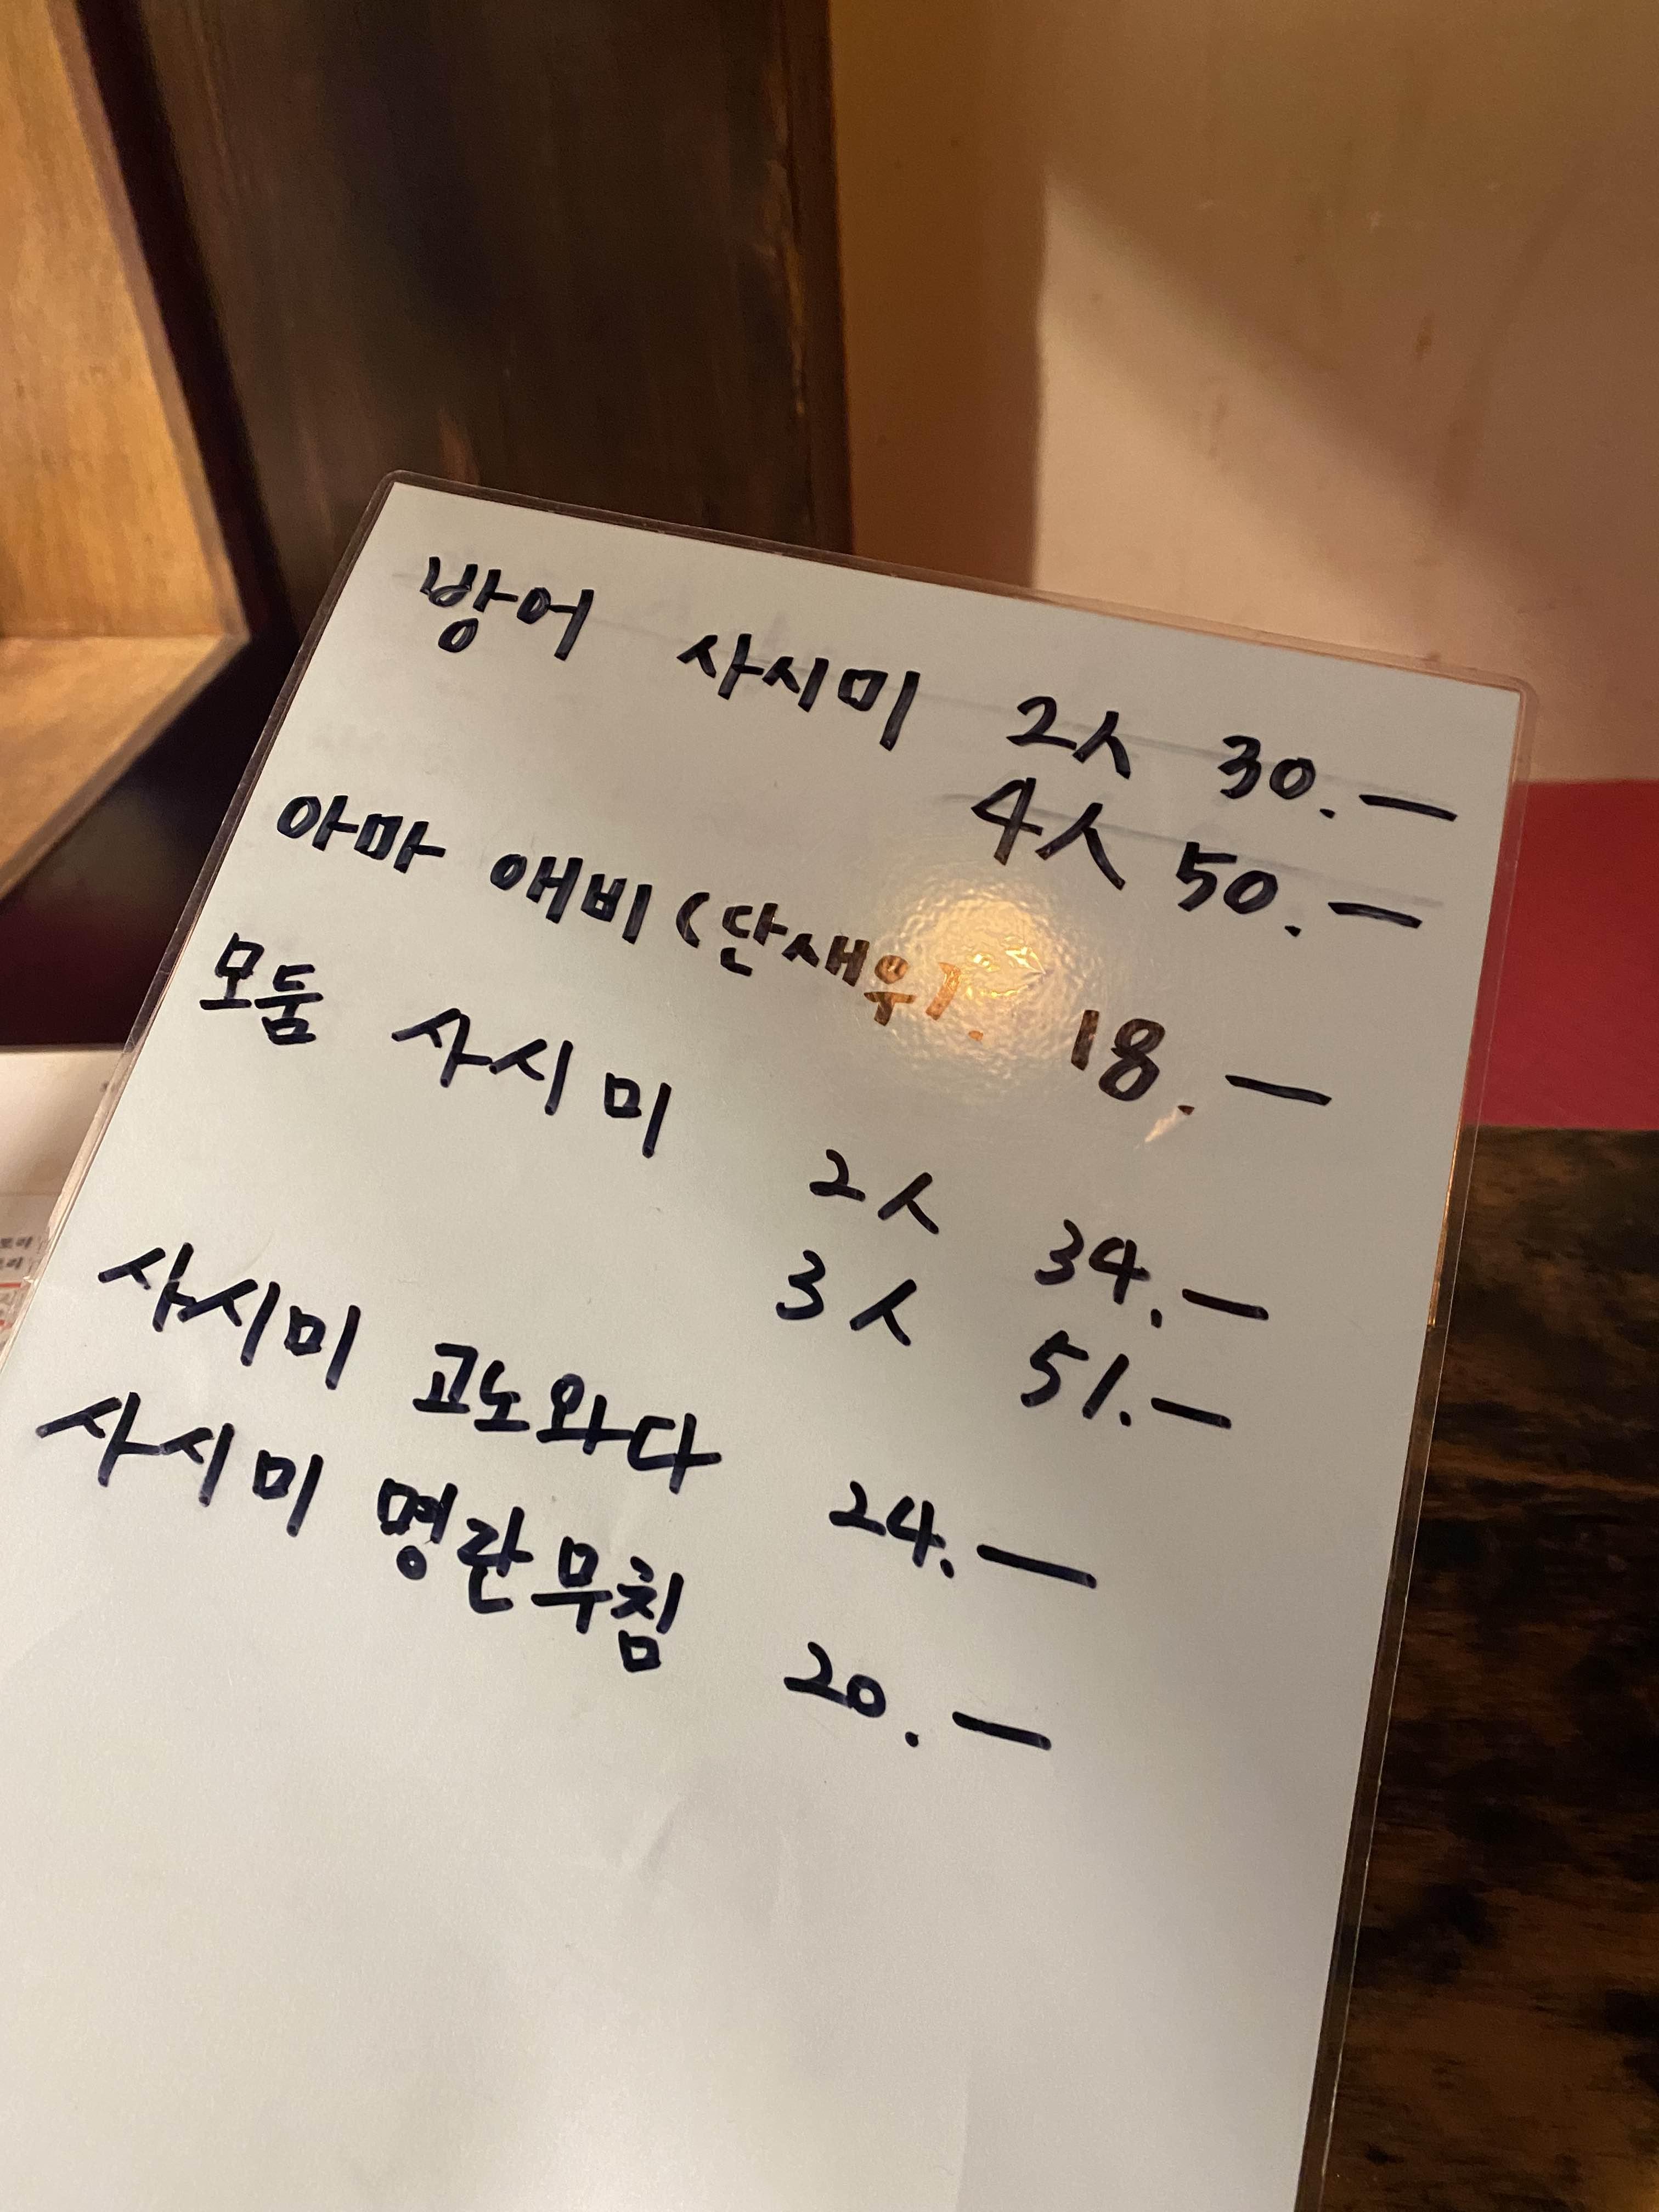 방어 사시미 2人 30.—
4人 50.—
아마 애비(단새우). 18.—
모둠 사시미
2人 34.—
3人 51.—
사시미 고노와다 24.—
사시미 명란무침 20.—